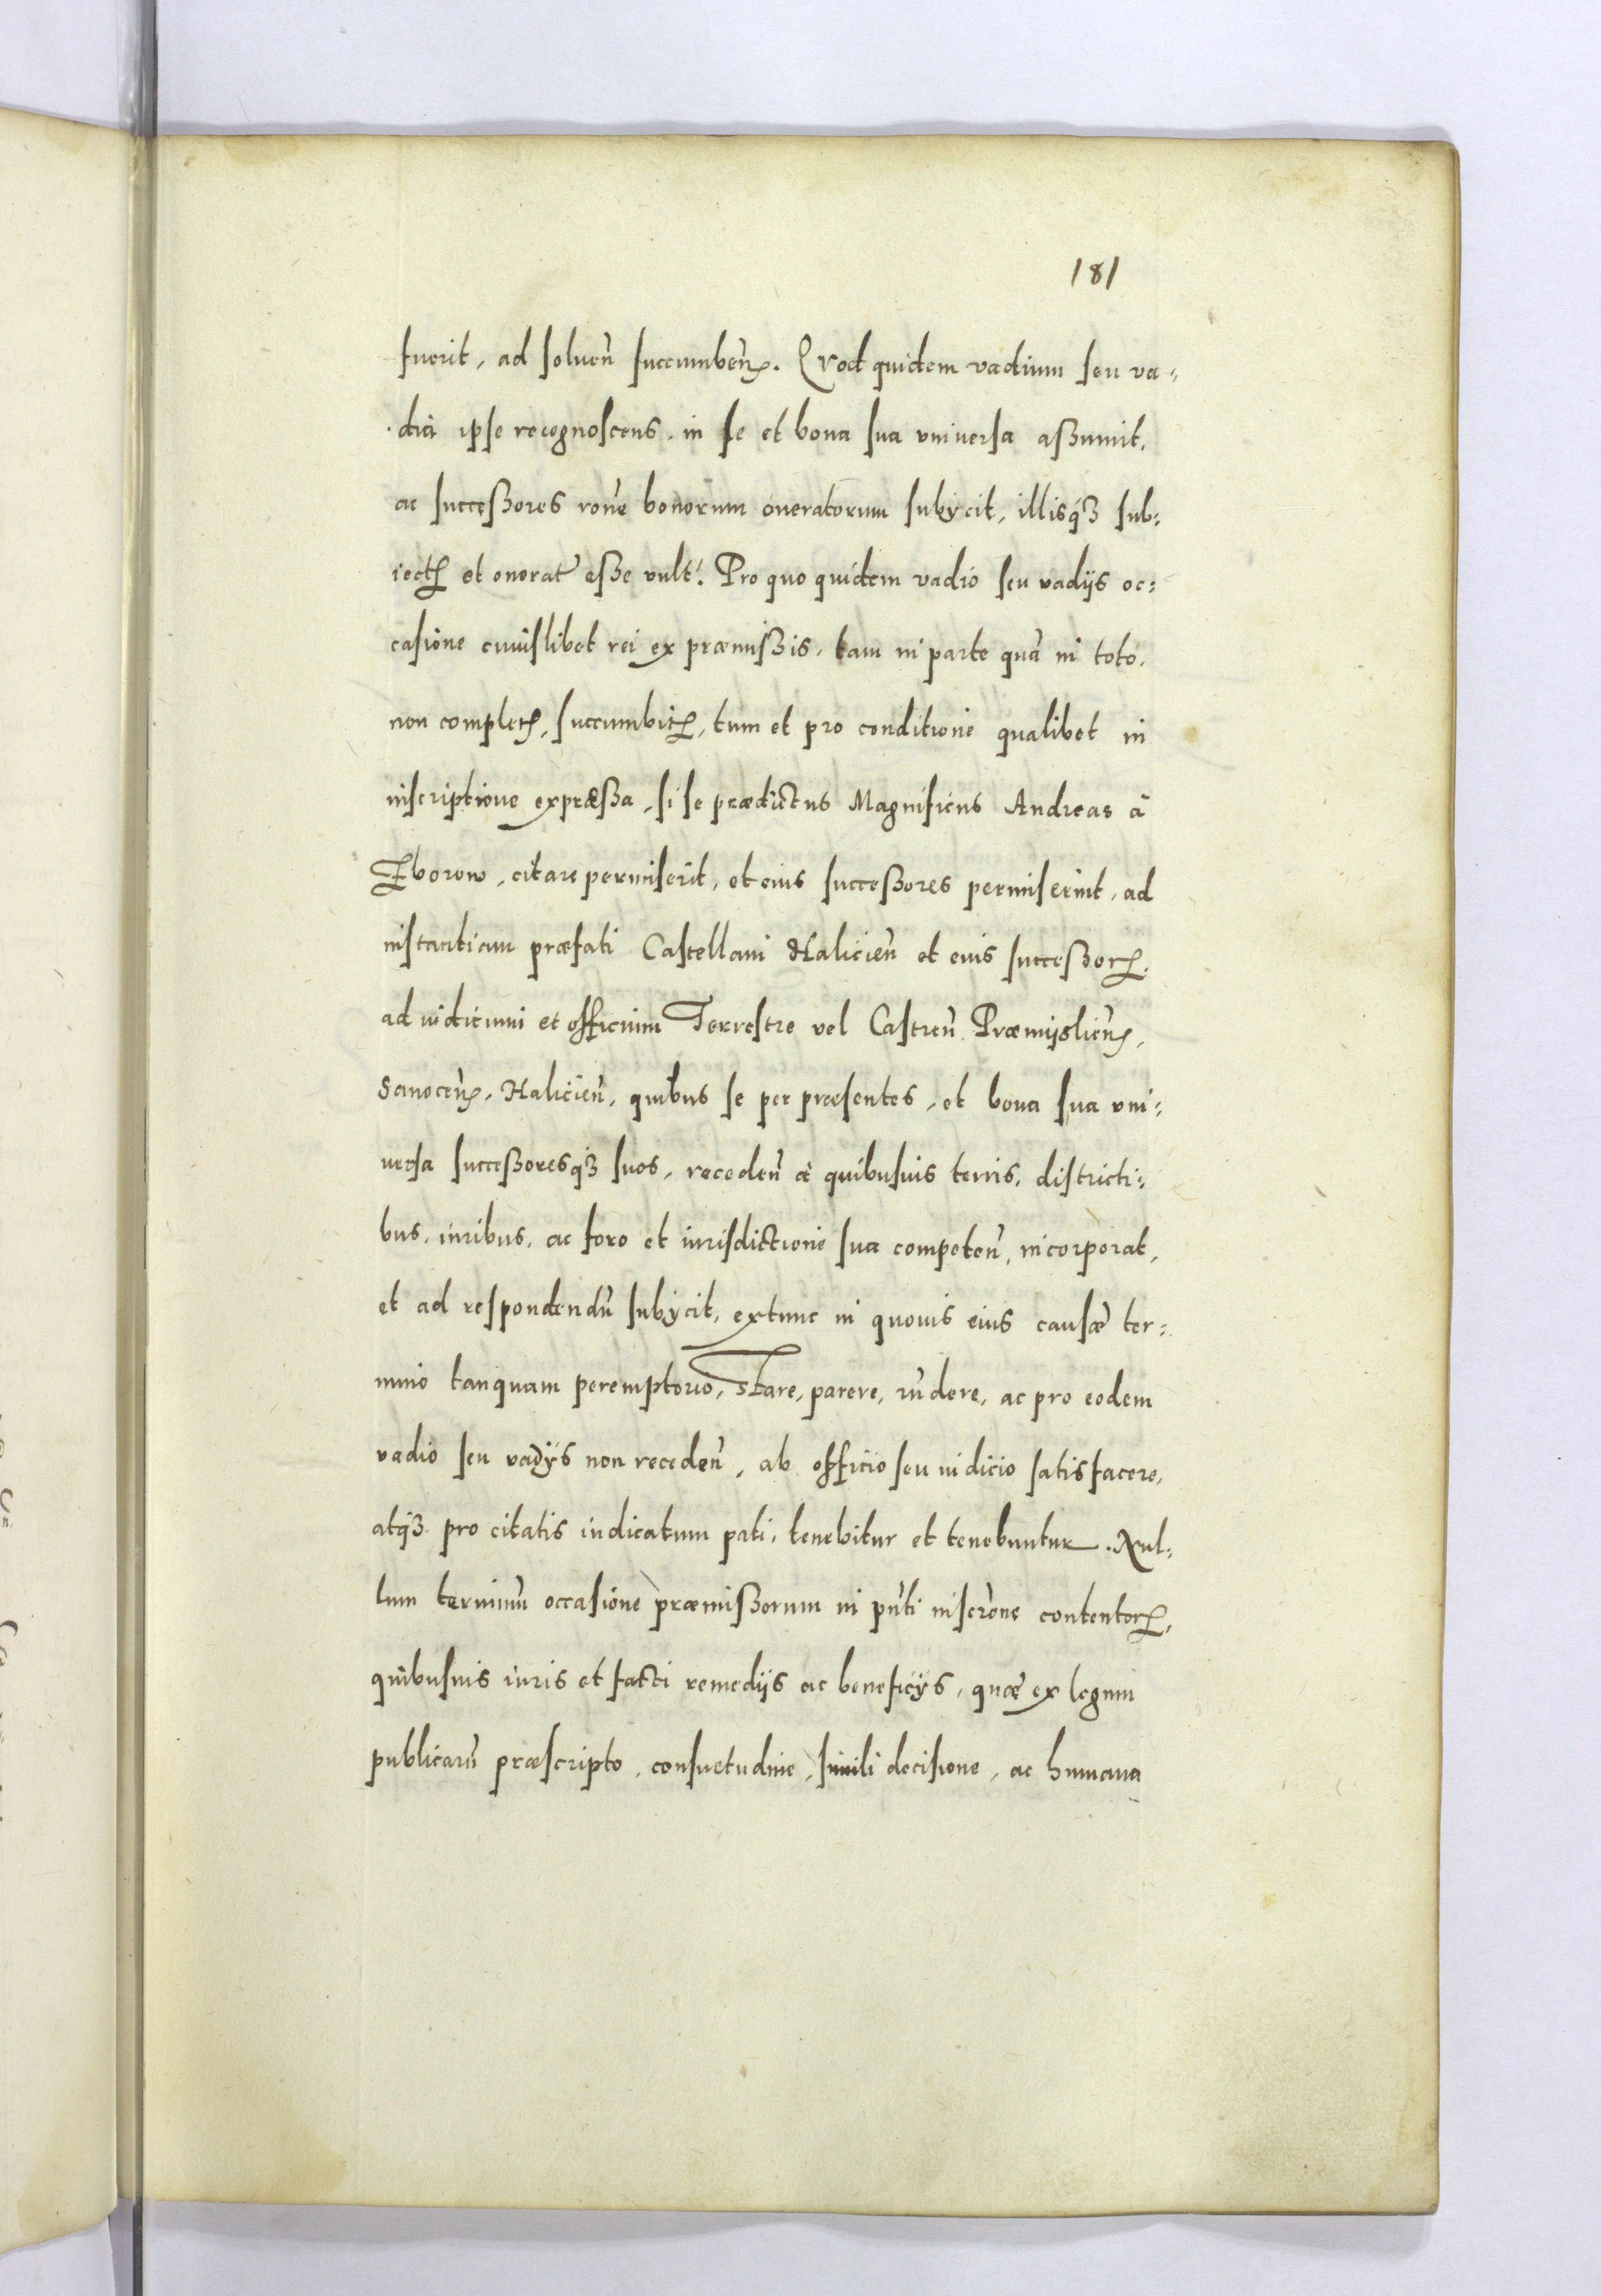 181
fuerit, ad soluen̄ succumben̄. Qvod quidem vadium seu va-
dia ipse recognoscens, in se et bona sua vniuersa aßumit,
ac succeßores rōne bonorum oneratorum subÿcit, illisqꝫ sub-
iect et onerat eße vult. Pro quo quidem vadio seu vadijs oc-
casione cuiuslibet rei ex præmißis, tam in parte quā in toto,
non complet, succumbit, tum et pro conditione qualibet in
inscriptione expræßa, si se prædictus Magnificus Andreas à
Tworow, citare permiserit, et eius succeßores permiserint, ad
instantiam præfati Castellani Halicien̄ et eius succeßor,
ad iudicium et officium Terrestre vel Castren̄ Præmijslien̄,
Sanocen̄, Halicien̄, quibus se per præsentes, et bona sua vni-
uersa succeßoresqꝫ suos, receden̄ à quibusuis terris, districti-
bus, iuribus, ac foro et iurisdictione sua competen̄, incorporat,
et ad respondendū subÿcit, extunc in quouis eius causæ ter-
mino tanquam peremptorio, stare, parere, rn̄dere, ac pro eodem
vadio seu vadÿs non receden̄, ab officio seu iudicio satisfacere,
atqꝫ pro citatis iudicatum pati, tenebitur et tenebuntur. Nul-
lum terminū occasione præmißorum in pn̄ti inscrōne contentor,
quibusuis iuris et facti remedijs ac beneficÿs, quæ ex legum
publicarū præscripto, consuetudine, simili decisione, ac humana